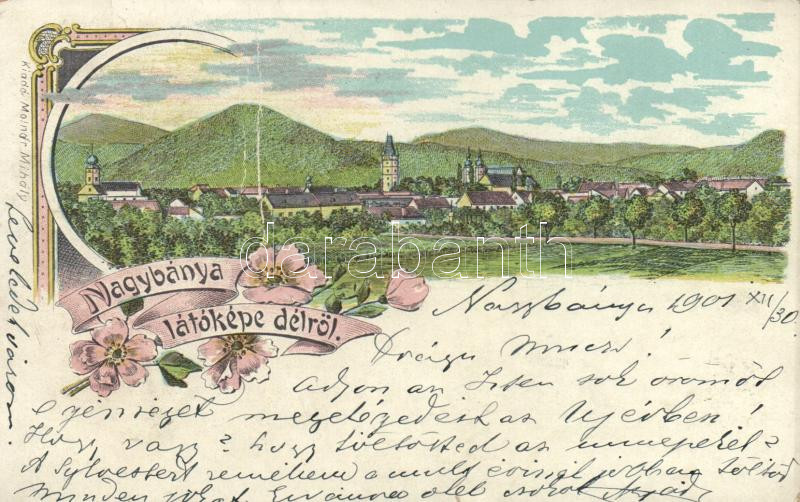 Kiadó Molnár Mihály
Nagybánya
látóképe délről.
darabanth
Nagybánya 901 XII/30
Drága
Adjon az Isten sok örömöt
egészséget megelégedést az Ujévben!
Hogy vagy? hogy töltötted az ünnepeket?
A Sylvestert remélem a mult évinél jobban töltöd
minden jókat kivánva ölel csókol